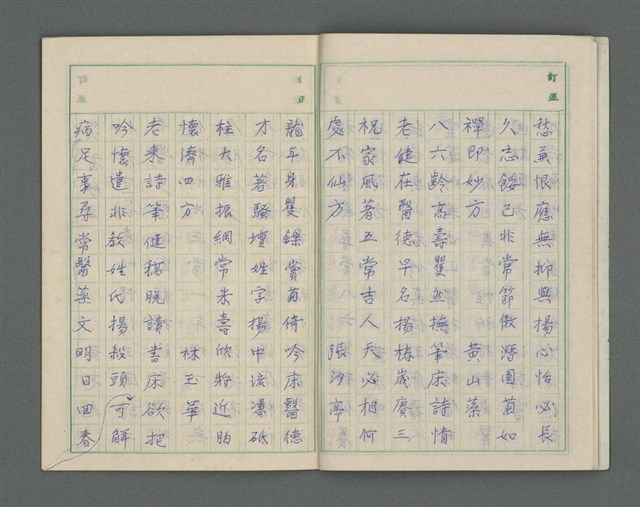 愁無恨應無抑與揚心怡必長
久志餒己非常節傲潛園菊如
禪即妙方　　　黃山藻
八六齡高壽矍然撫筆床詩情
老健在醫德早名揚椿歲賡三
祝家風著五常吉人天必相何
處不仙方　　　張汐亭
龍年身矍鑠賞菊倚吟床醫德
才名著騷壇姓字揚中流憑砥
柱大雅振綱常米壽欣將近昀
懷濟四方　　　林玉華
老來詩筆健猶晚讀書床欲把
吟懷遣非教姓氏揚殺頭可解
病足事尋常醫藥文明日回春
訂